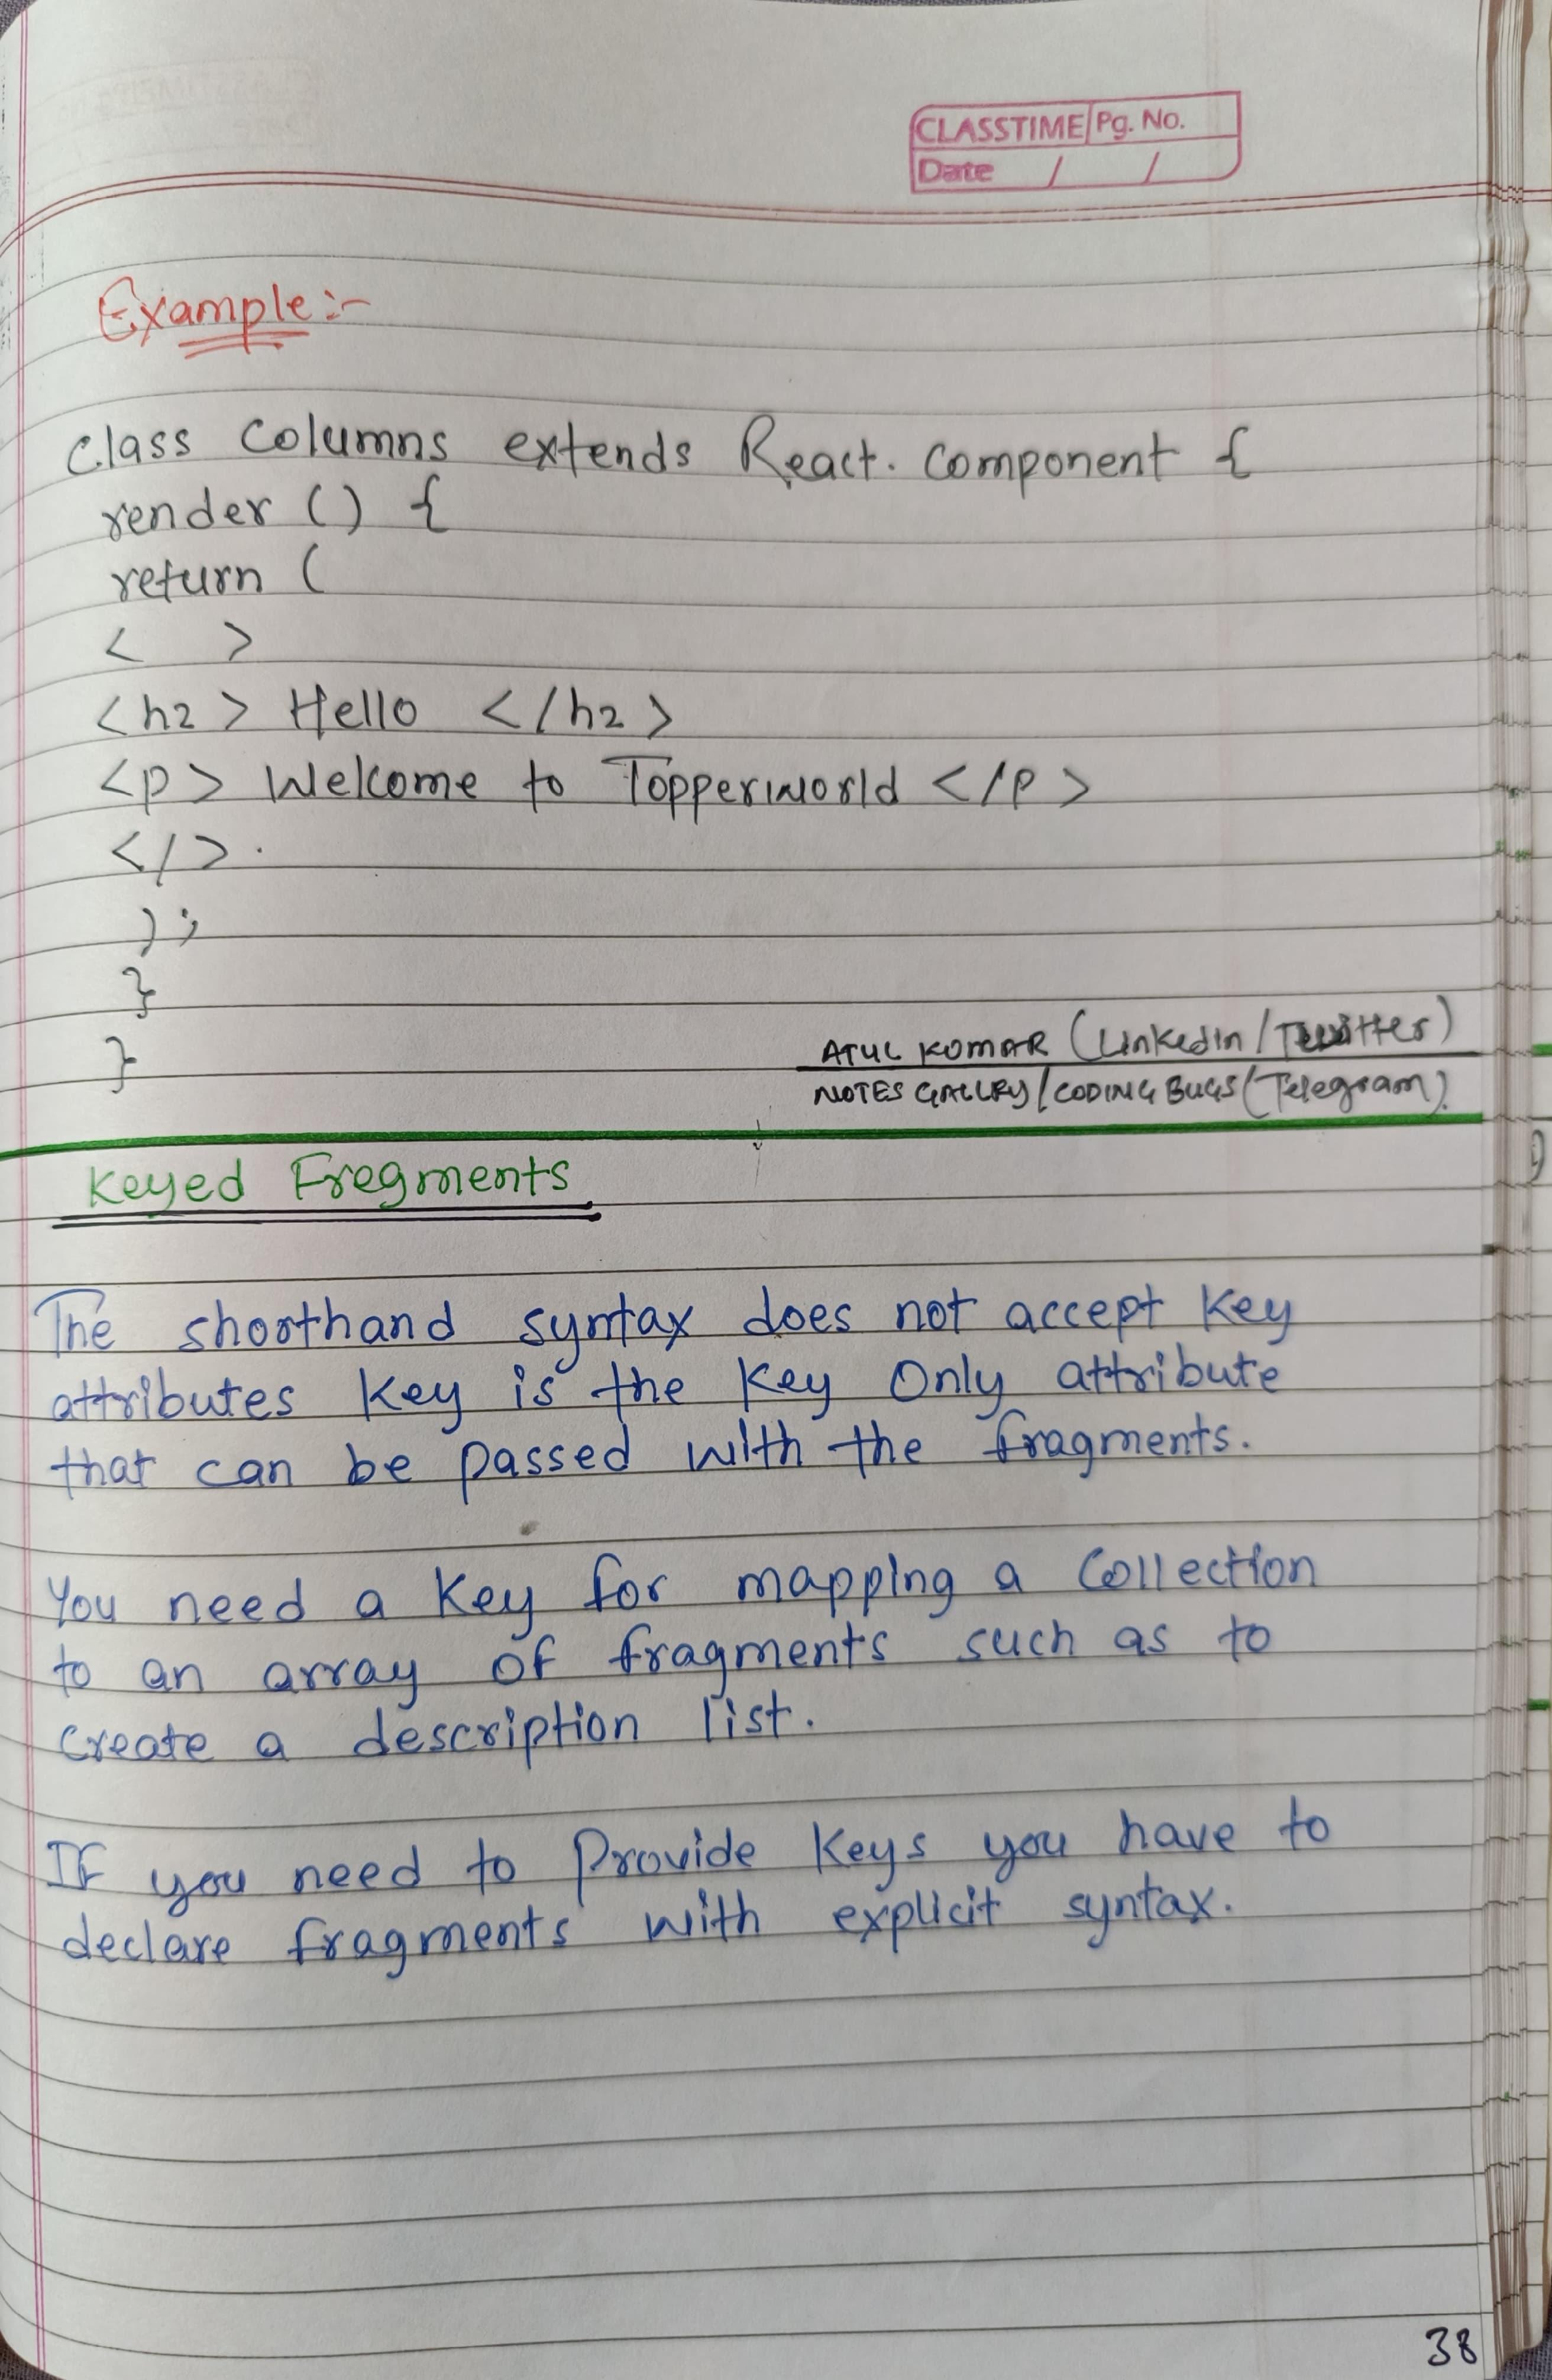 CLASSTIME Pg. No.
Date / /
Example:-
Class Columns extends React. Component {
render () {
return (
< >
<h2> Hello </h2>
<p> Welcome to Topperworld </p>
</>.
);
}
}
ATUL KUMAR (Linkedin/Twitter)
NOTES GALLRY/CODING BUGS (Telegram)
Keyed Fregments
The shorthand syntax does not accept key
attributes key is the key Only attribute
that can be passed with the fragments.
You need a key for mapping a Collection
to an array of fragments such as to
create a description list.
If you need to Provide keys you have to
declare fragments with explicit syntax.
38